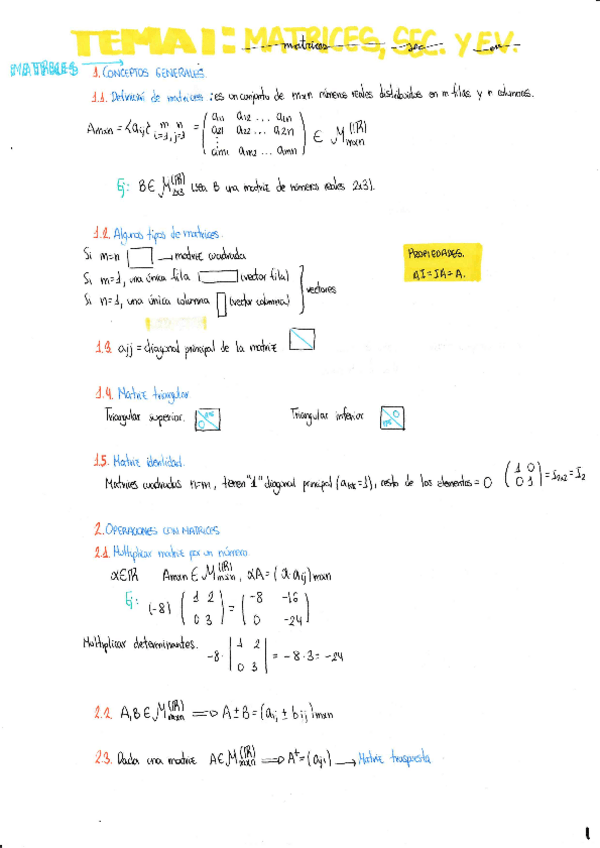 TEMA 1: MATRICES, SEC. Y EV.
MATRICES
1. CONCEPTOS GENERALES.
1.1. Definición de matrices: es un conjunto de mxn números reales distribuidos en m filas y n columnas.
Amxn = {aij} m n i=1, j=1 = ( a11 a12 ... a1n
a21 a22 ... a2n
⋮
am1 am2 ... amn ) ∈ M(ℝ) mxn
Ej: B ∈ M(ℝ) 2x3 (sea B una matriz de números reales 2x3).
1.2. Algunos tipos de matrices.
Si m=n → matriz cuadrada
PROPIEDADES.
AI = IA = A.
Si m=1, una única fila (vector fila)
Si n=1, una única columna (vector columna)
vectores
1.3. aij = diagonal principal de la matriz
1.4. Matriz triangular
Triangular superior. Triangular inferior
1.5. Matriz identidad.
Matrices cuadradas n=m, tienen "1" diagonal principal ( =1), resto de los elementos = 0 ( 1 0
0 1 ) = I2x2 = I2
2. OPERACIONES CON MATRICES
2.1. Multiplicar matriz por un número.
α∈ℝ Amxn ∈ M(ℝ) mxn, αA = (α·aij)mxn
Ej: (-8) ( 1 2
0 3 ) = ( -8 -16
0 -24 )
Multiplicar determinantes.
-8 · | 1 2
0 3 | = -8·3 = -24
2.2. A,B ∈ M(ℝ) mxn ⇒ A±B = (aij ± bij)mxn
2.3. Dada una matriz A∈M(ℝ) mxn ⇒ At = (aji) → Matriz traspuesta
1